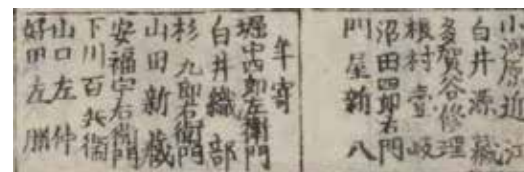 小河原近江
白井源蔵
多賀谷修理
根村壹岐
沼田四郎右門
門屋新八
年寄
堀中四郎左衛門
白井織部
杉九郎右衛門
山田新蔵
安福宇右衛門
下川百兵衛
山口左仲
好田左膳